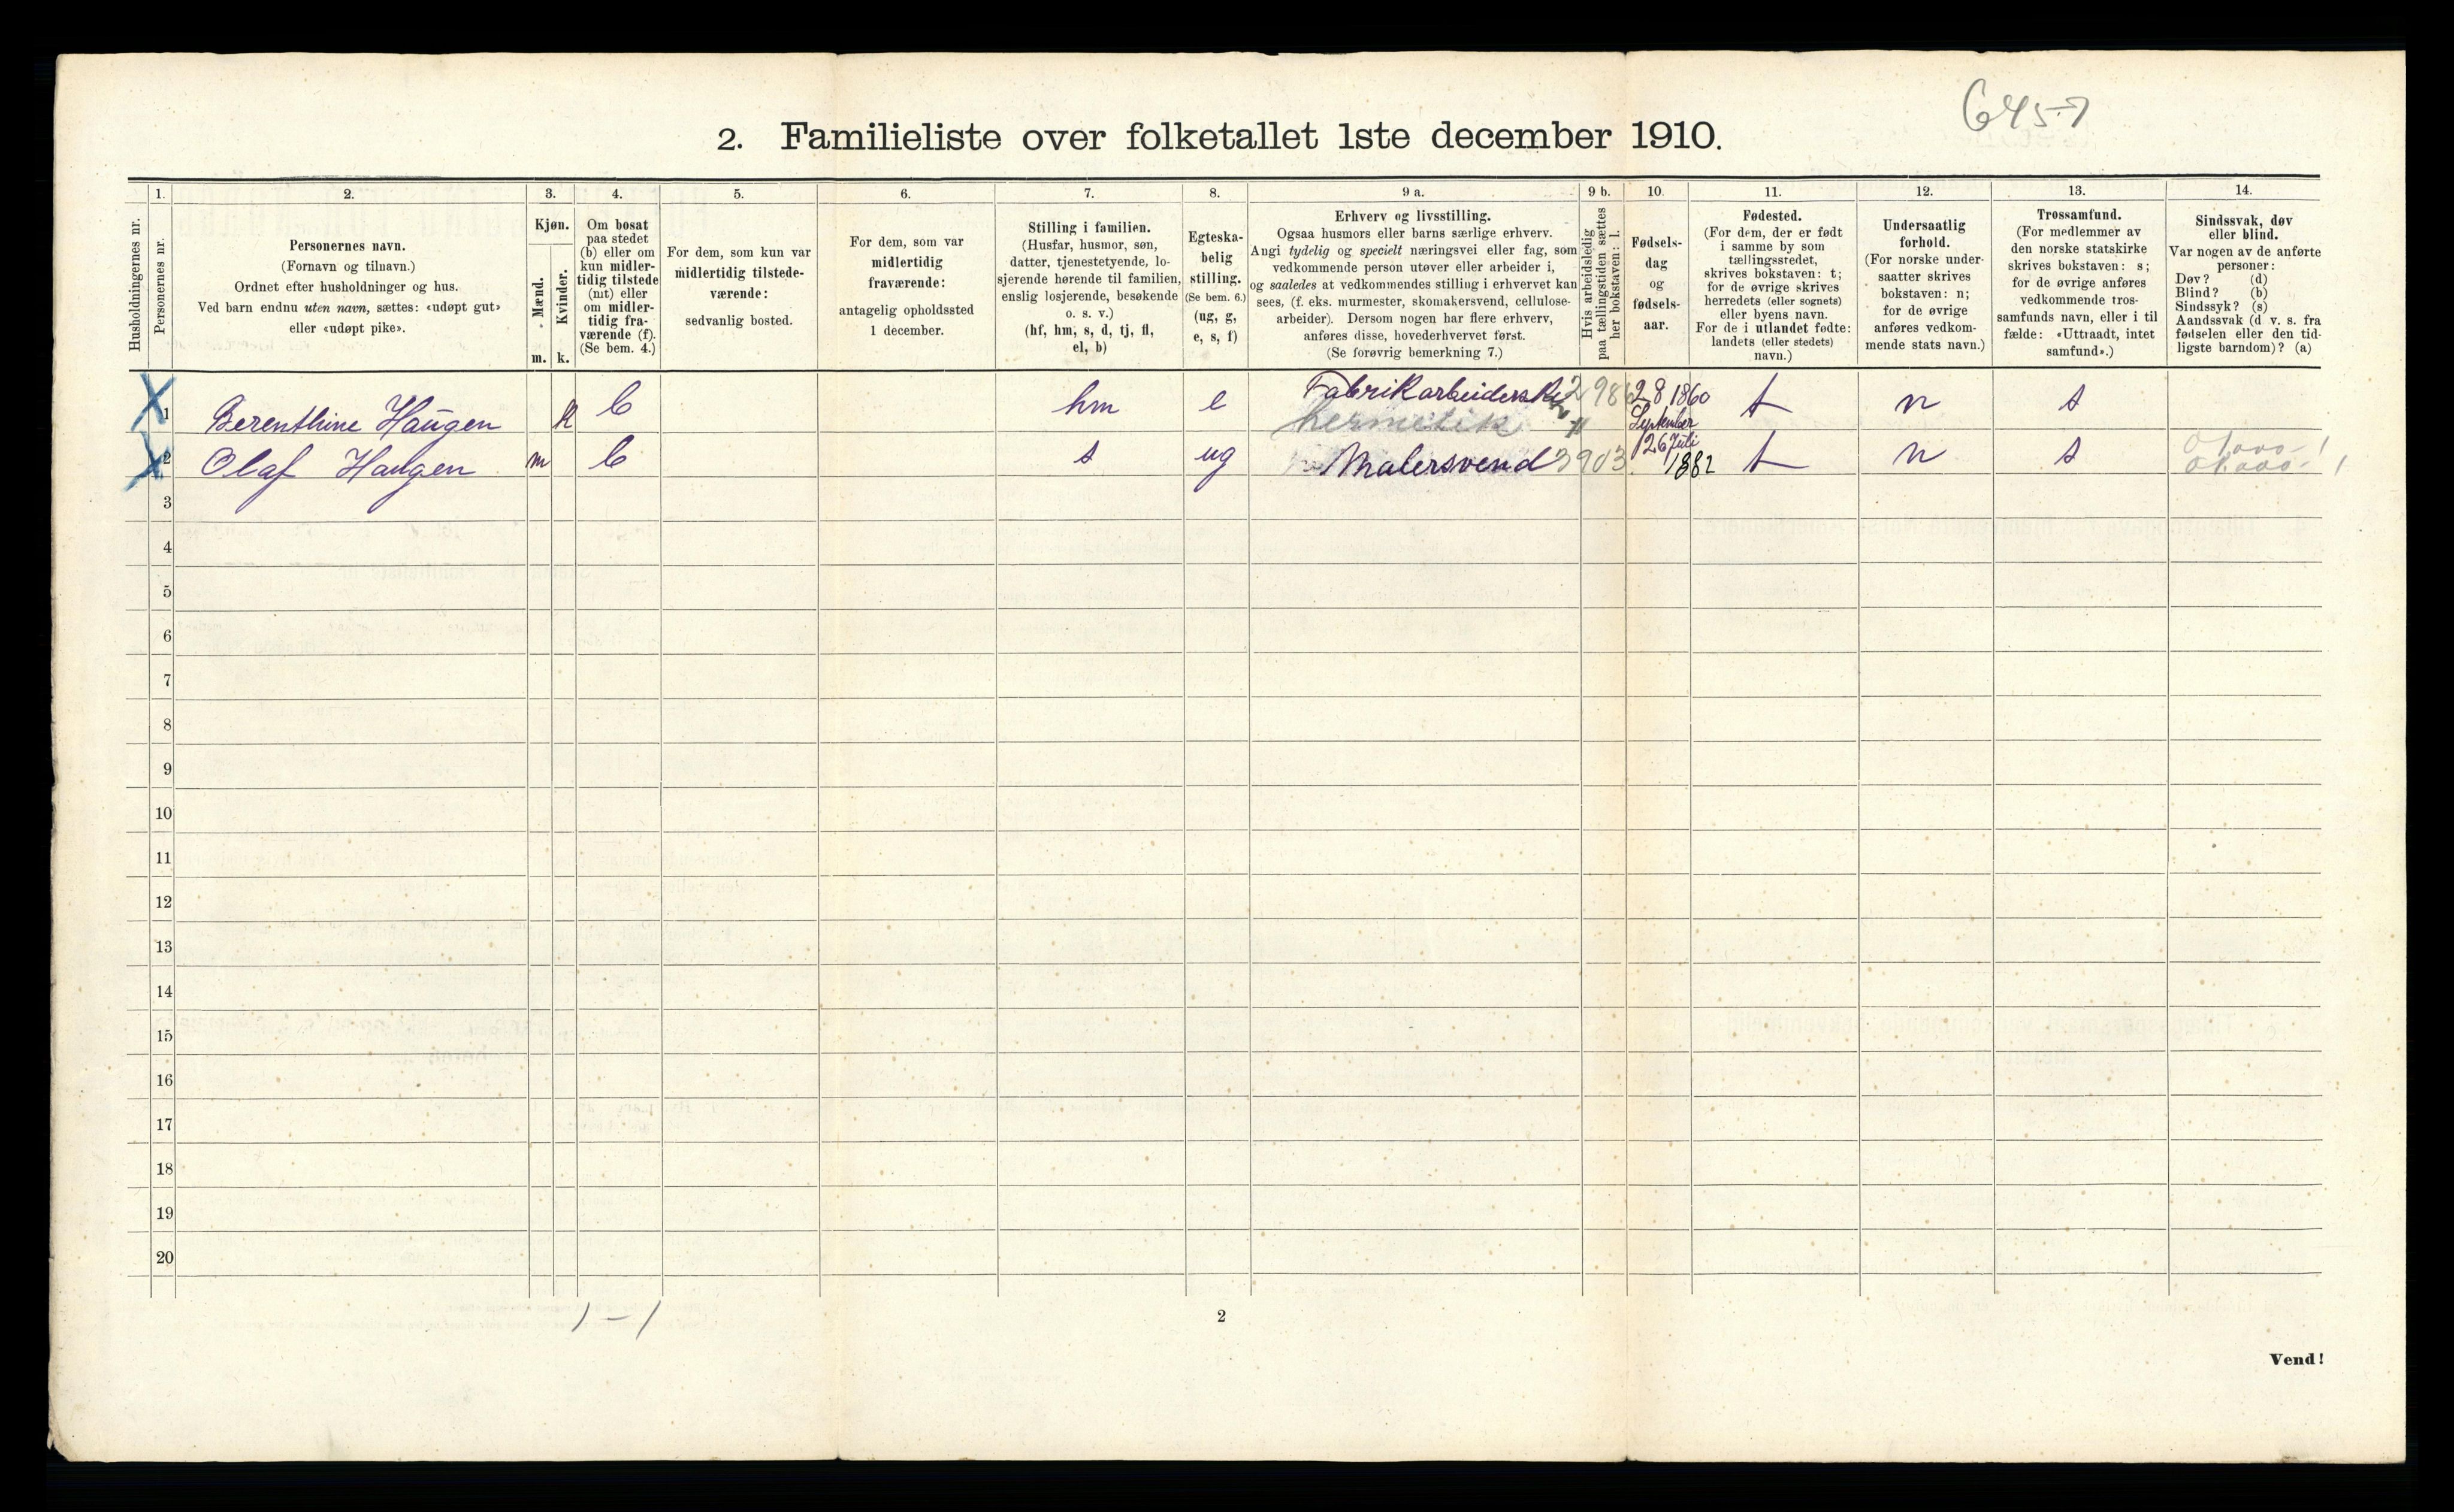 6457
2. Familieliste over folketallet 1ste december 1910.
1. 2. 3. 4. 5. 6. 7. 8. 9 a. 9 b. 10. 11. 12. 13. 14.
Husholdningernes nr.
Personernes nr.
Personernes navn.
(Fornavn og tilnavn.)
Ordnet efter husholdninger og hus.
Ved barn endnu uten navn, sættes: «udøpt gut»
eller «udøpt pike».
Kjøn.
Mænd.
Kvinder.
m. k.
Om bosat
paa stedet
(b) eller om
kun midler-
tidig tilstede
(mt) eller
om midler-
tidig fra-
værende (f).
(Se bem. 4.)
For dem, som kun var
midlertidig tilstede-
værende:
sedvanlig bosted.
For dem, som var
midlertidig
fraværende:
antagelig opholdssted
1 december.
Stilling i familien.
(Husfar, husmor, søn,
datter, tjenestetyende, lo-
sjerende hørende til familien,
enslig losjerende, besøkende
o. s. v.)
(hf, hm, s, d, tj, fl,
el, b)
Egteska-
belig
stilling.
(Se bem. 6.)
(ug, g,
e, s, f)
Erhverv og livsstilling.
Ogsaa husmors eller barns særlige erhverv.
Angi tydelig og specielt næringsvei eller fag, som
vedkommende person utøver eller arbeider i,
og saaledes at vedkommendes stilling i erhvervet kan
sees, (f. eks. murmester, skomakersvend, cellulose-
arbeider). Dersom nogen har flere erhverv,
anføres disse, hovederhvervet først.
(Se forøvrig bemerkning 7.)
Hvis arbeidsledig
paa tællingstiden sættes
her bokstaven: l.
Fødsels-
dag
og
fødsels-
aar.
Fødested.
(For dem, der er født
i samme by som
tællingsstedet,
skrives bokstaven: t;
for de øvrige skrives
herredets (eller sognets)
eller byens navn.
For de i utlandet fødte:
landets (eller stedets)
navn.)
Undersaatlig
forhold.
(For norske under-
saatter skrives
bokstaven: n;
for de øvrige
anføres vedkom-
mende stats navn.)
Trossamfund.
(For medlemmer av
den norske statskirke
skrives bokstaven: s;
for de øvrige anføres
vedkommende tros-
samfunds navn, eller i til
fælde: «Uttraadt, intet
samfund».)
Sindssvak, døv
eller blind.
Var nogen av de anførte
personer:
Døv? (d)
Blind? (b)
Sindssyk? (s)
Aandssvak (d v. s. fra
fødselen eller den tid-
ligste barndom)? (a)
X 1 Berenthine Haugen k b hm e Fabrikarbeiderske 28 1860 t n s
hermetik September
X 2 Olaf Haugen m b s ug Malersvend 3903 26 Juli 1882 t n s
3
4
5
6
7
8
9
10
11
12
13
14
15
16
17
18
19
20
1 – 1
2
Vend!